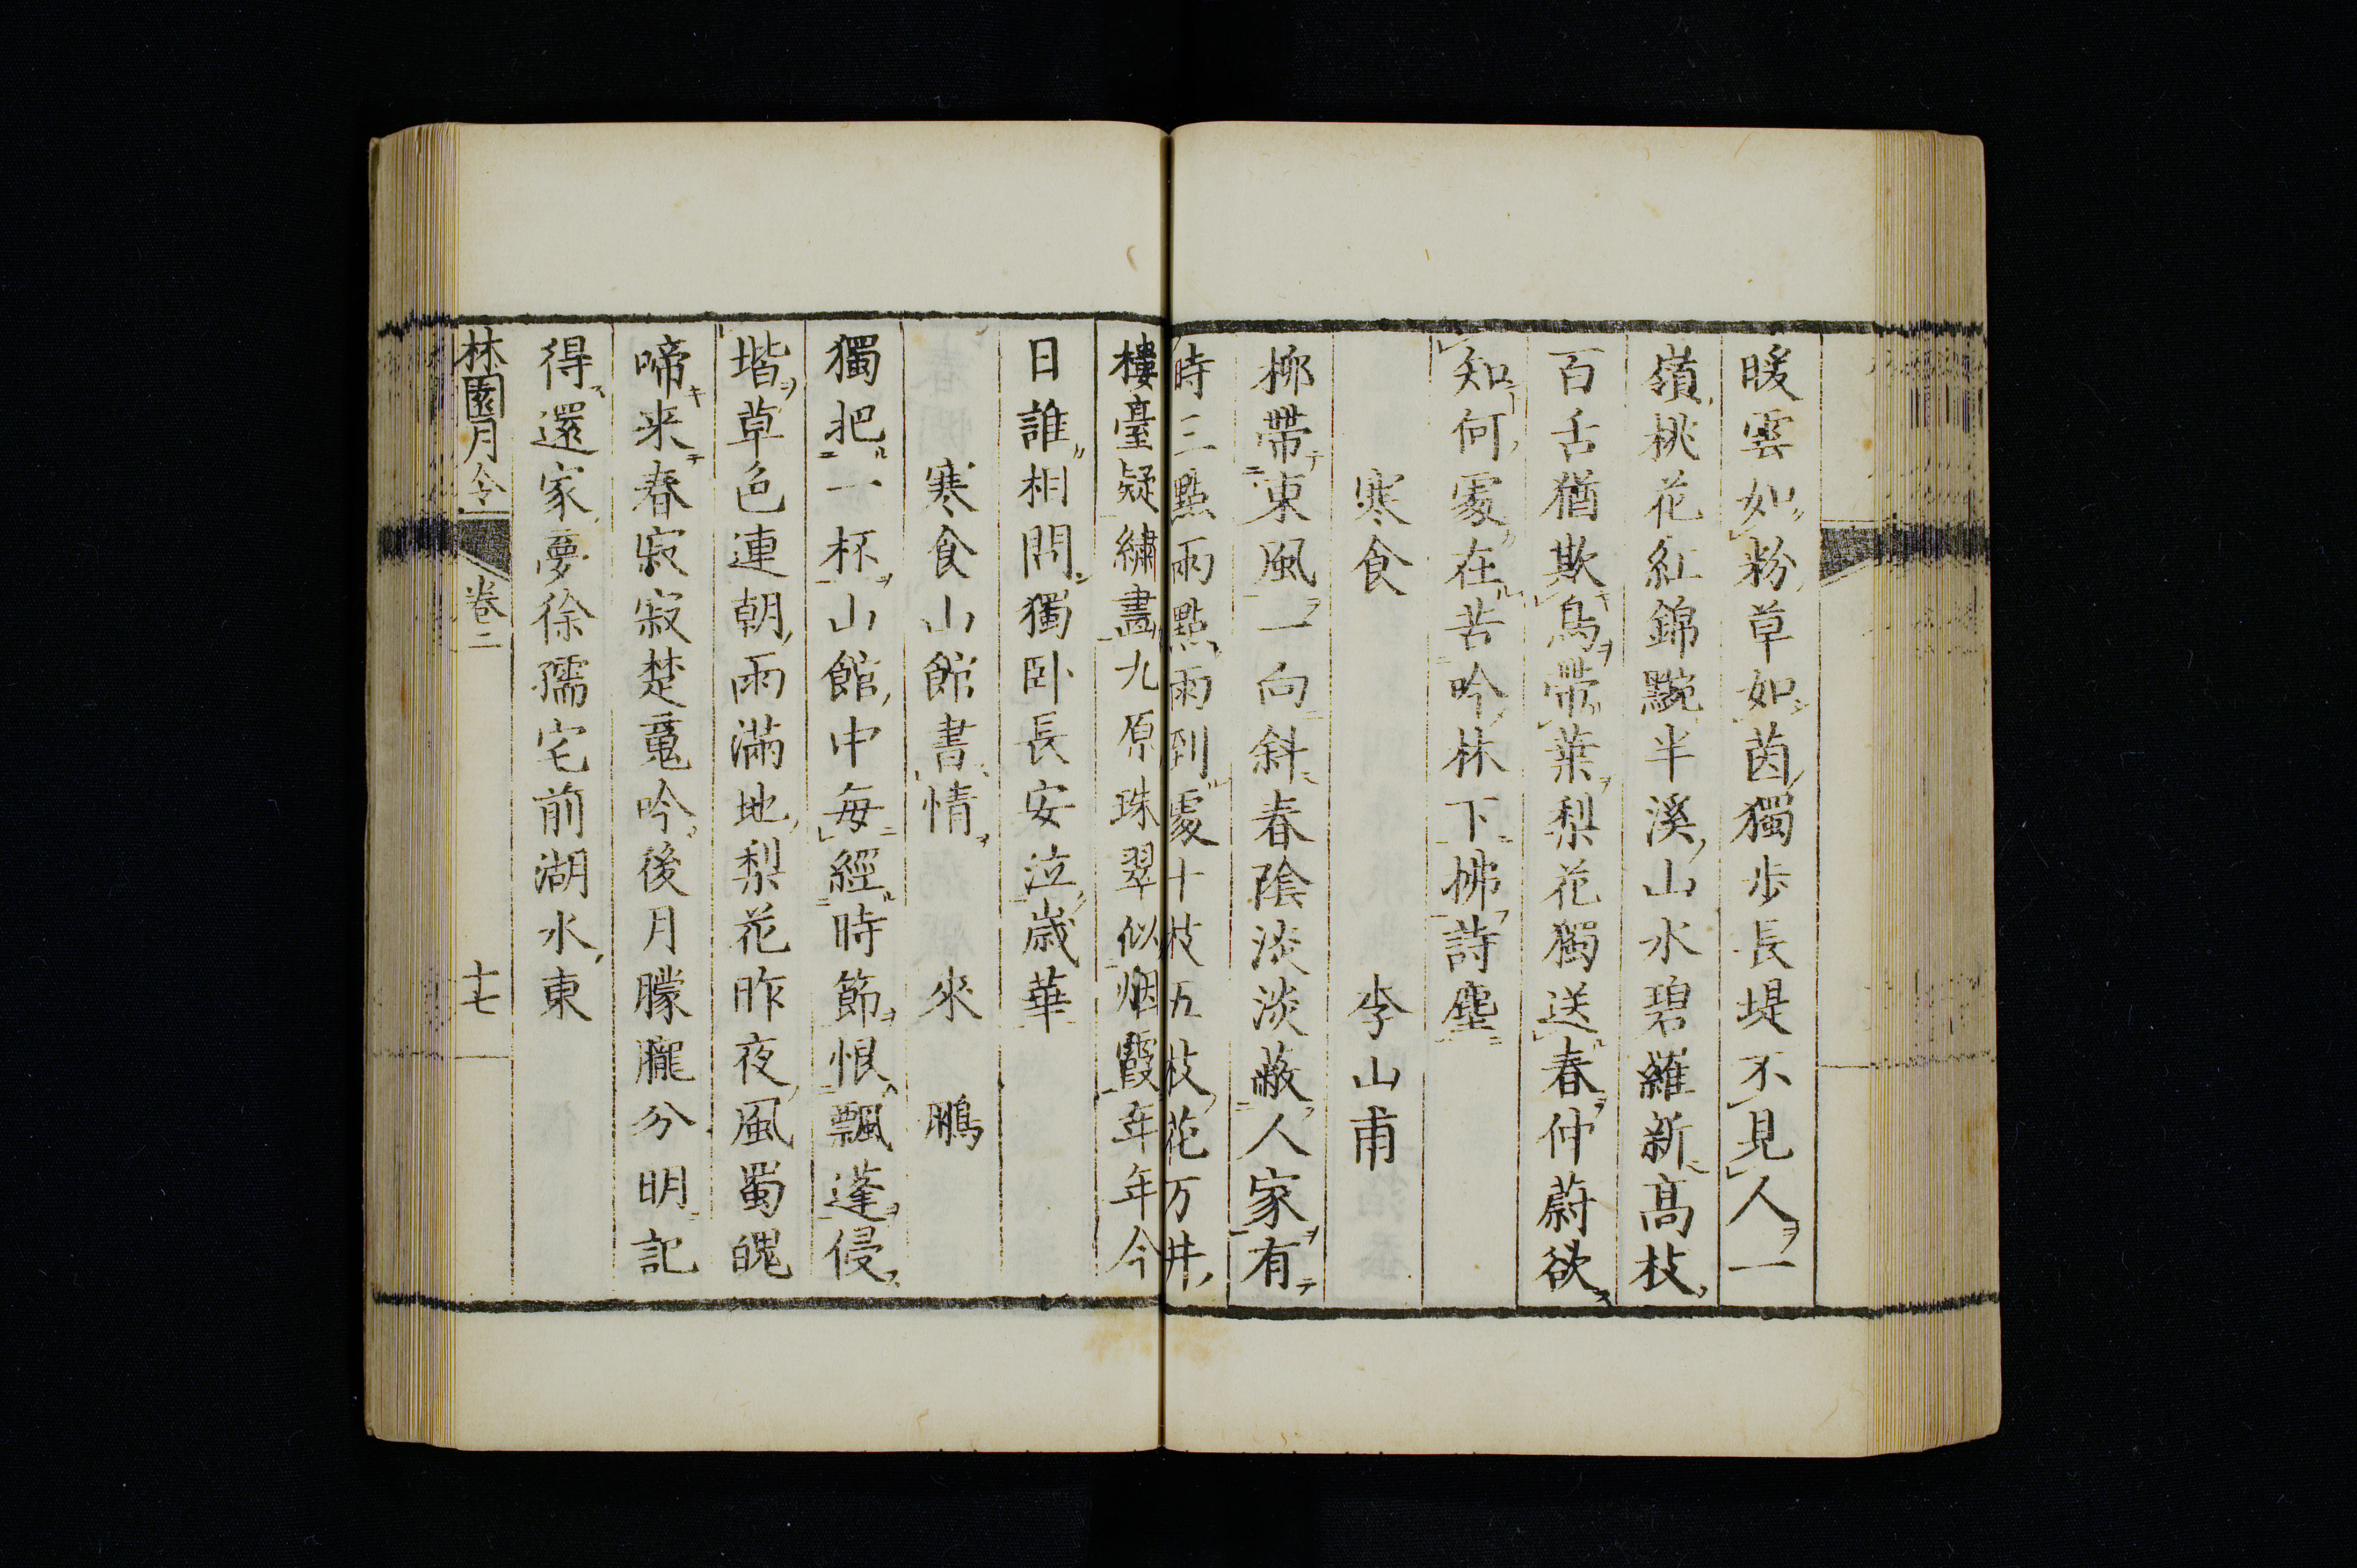 暖雲如粉草如茵獨歩長堤不見人一
嶺桃花紅錦黦半溪山水碧羅新高枝
百舌猶欺鳥帶葉梨花獨送春仲蔚欲
知何處在苦吟林下拂詩塵
寒食　李山甫
柳帶東風一向斜春陰淡淡蔽人家有
時三點兩點雨到處十枝五枝花万井
樓臺疑繡畫九原珠翠似烟霞年年今
日誰相問獨卧長安泣歳華
寒食山館書情　來鵬
獨把一杯山館中毎經時節恨飄蓬侵
堦草色連朝雨滿地梨花昨夜風蜀魄
啼来春寂寂楚魂吟後月朦朧分明記
得還家夢徐孺宅前湖水東
林園月令　卷二　十七